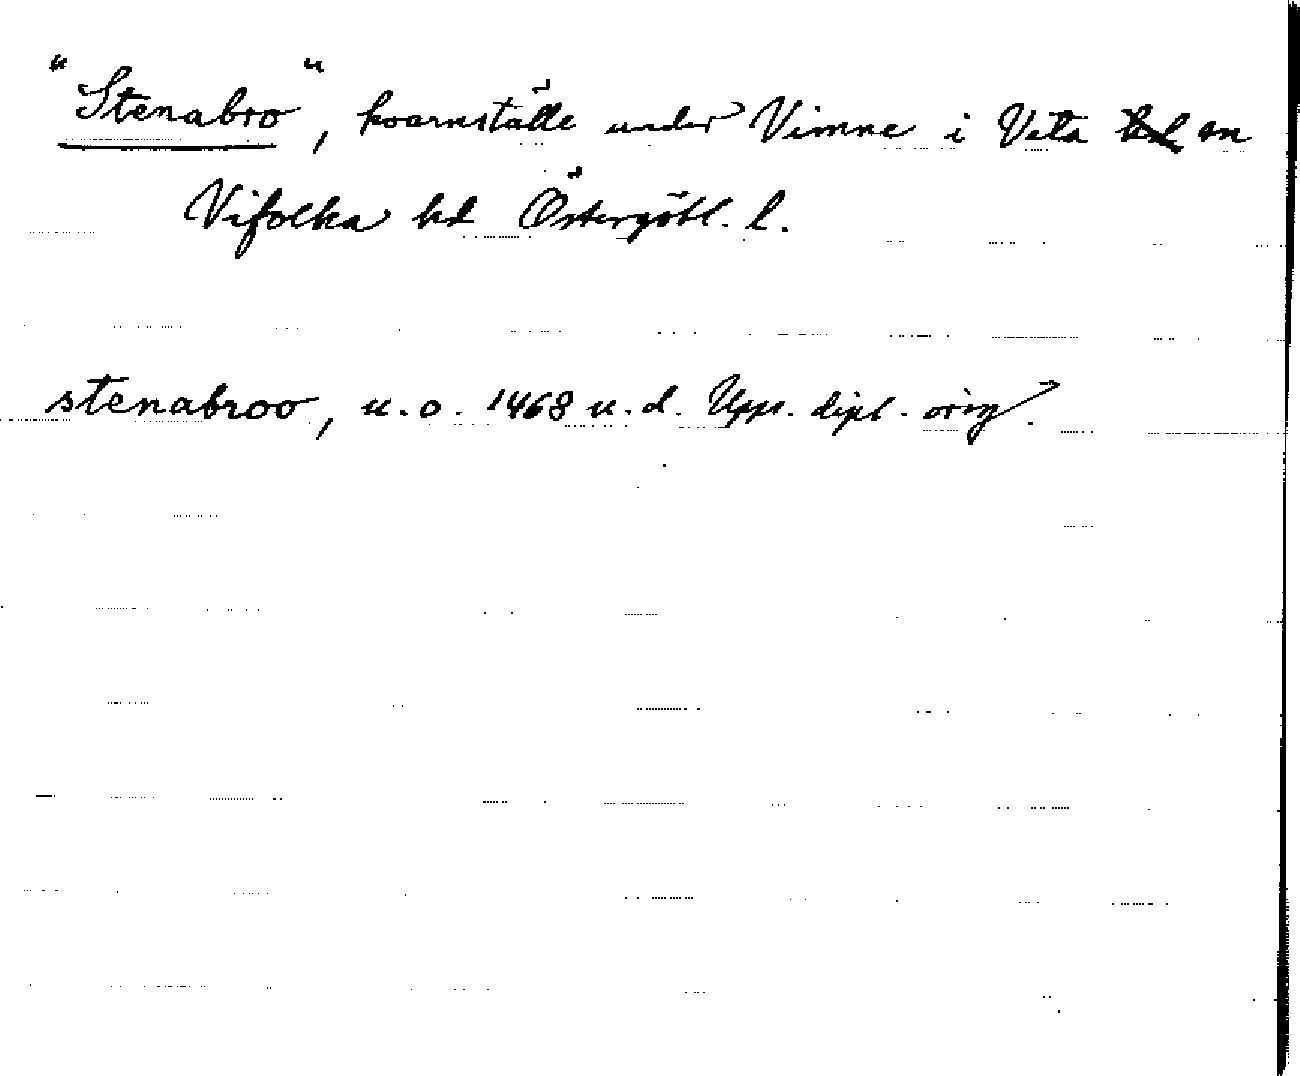 "Stenabro", kvarnställe under Vimne i Veta sn
Vifolka hd Östergötl. l.
stenabroo, u.o. 1468 u.d. Upps. dipl. orig.